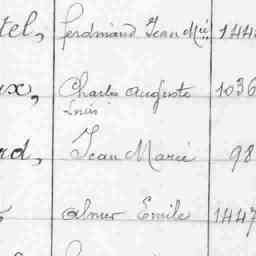 tel, Ferdinand Jean Mie 144
ux, Charles Auguste 1036
Louis
rd, Jean Marie 98
Elmer Emile 1447